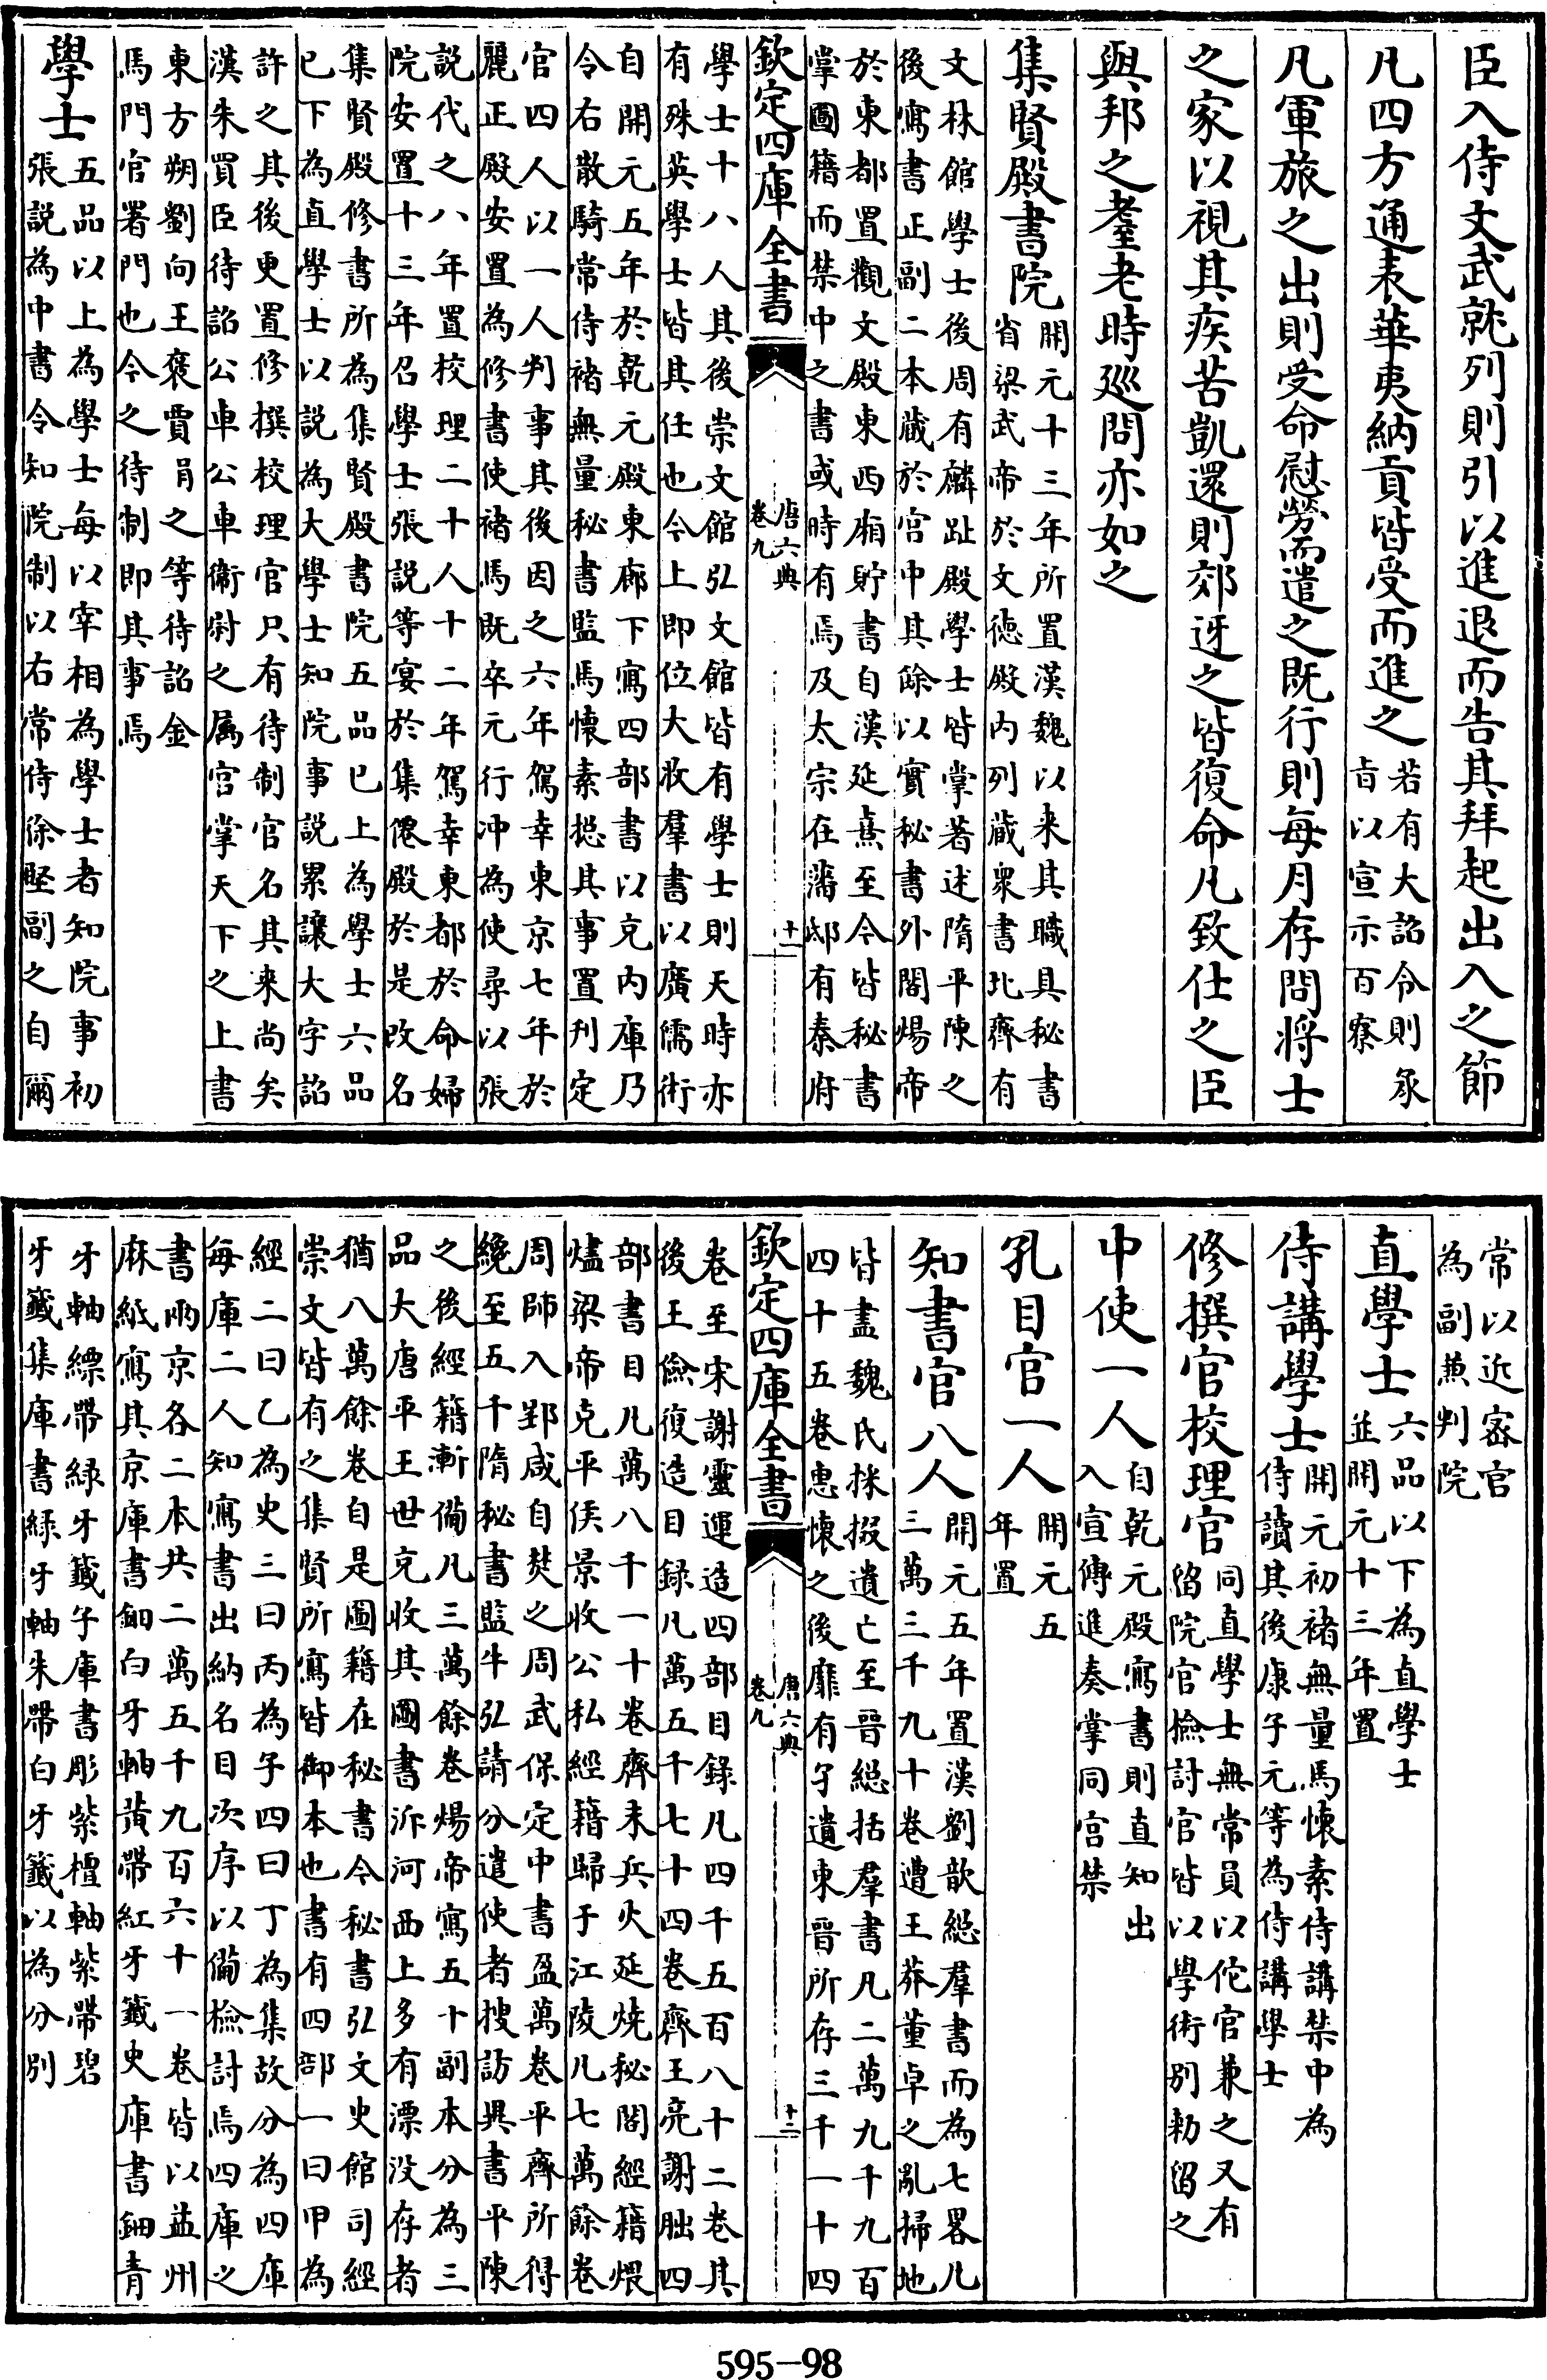 臣入侍文武就列則引以進退而告其拜起出入之節
凡四方通表華夷納貢皆受而進之若有大詔令則承
旨以宣示百寮
凡軍旅之出則受命慰勞而遣之既行則每月存問將士
之家以視其疾苦凱還則郊迓之皆復命凡致仕之臣
與邦之耋老時巡問亦如之
集賢殿書院開元十三年所置漢魏以来其職具秘書
省梁武帝於文徳殿内列藏衆書北齊有
文林館學士後周有麟趾殿學士皆掌著述隋平陳之
後寫書正副二本藏於宫中其餘以實秘書外閣煬帝
於東都置觀文殿東西廂貯書自漢延熹至今皆秘書
掌圖籍而禁中之書或時有焉及太宗在藩邸有秦府
欽定四庫全書
唐六典
卷九
十一
學士十八人其後崇文館弘文館皆有學士則天時亦
有殊英學士皆其任也今上即位大收羣書以廣儒術
自開元五年於乾元殿東廊下寫四部書以克内庫乃
令右散騎常侍褚無量秘書監馬懐素揔其事置刋定
官四人以一人判事其後因之六年駕幸東京七年於
麗正殿安置為修書使褚馬既卒元行冲為使尋以張
説代之八年置校理二十人十二年駕幸東都於命婦
院安置十三年召學士張説等宴於集僊殿於是改名
集賢殿修書所為集賢殿書院五品已上為學士六品
已下為直學士以説為大學士知院事説累讓大字詔
許之其後更置修撰校理官只有待制官名其来尚矣
漢朱買臣待詔公車公車衛尉之属官掌天下之上書
東方朔劉向王褒賈捐之等待詔金
馬門官署門也今之待制即其事焉
學士五品以上為學士每以宰相為學士者知院事初
張説為中書令知院制以右常侍徐堅副之自爾
常以近宻官
為副兼判院
直學士六品以下為直學士
並開元十三年置
侍講學士開元初褚無量馬懐素侍講禁中為
侍讀其後康子元等為侍講學士
修撰官校理官同直學士無常員以佗官兼之又有
㽞院官檢討官皆以學術别勅留之
中使一人自乾元殿寫書則直知出
入宣傳進奏掌同宫禁
孔目官一人開元五
年置
知書官八人開元五年置漢劉歆緫羣書而為七畧凡
三萬三千九十卷遭王莽董卓之亂掃地
皆盡魏氏採掇遺亡至晉緫括羣書凡二萬九千九百
四十五卷恵懐之後靡有孑遺東晉所存三千一十四
欽定四庫全書
唐六典
卷九
十二
卷至宋謝靈運造四部目錄凡四千五百八十二卷其
後王儉復造目録凡萬五千七十四卷齊王亮謝朏四
部書目凡萬八千一十卷齊末兵火延燒秘閣經籍煨
燼梁帝克平侯景收公私經籍歸于江陵凡七萬餘卷
周師入郢咸自焚之周武保定中書盈萬卷平齊所得
纔至五千隋秘書監牛弘請分遣使者搜訪異書平陳
之後經籍漸備凡三萬餘卷煬帝寫五十副本分為三
品大唐平王世充收其圖書泝河西上多有漂没存者
猶八萬餘卷自是圖籍在秘書今秘書弘文史館司經
崇文皆有之集賢所寫皆御本也書有四部一曰甲為
經二曰乙為史三曰丙為子四曰丁為集故分為四庫
每庫二人知寫書出納名目次序以備檢討焉四庫之
書兩京各二本共二萬五千九百六十一卷皆以益州
麻紙寫其京庫書鈿白牙軸黄帶紅牙籖史庫書鈿青
牙軸縹帶緑牙籖子庫書彫紫檀軸紫帶碧
牙籖集庫書緑牙軸朱帶白牙籖以為分别
595—98